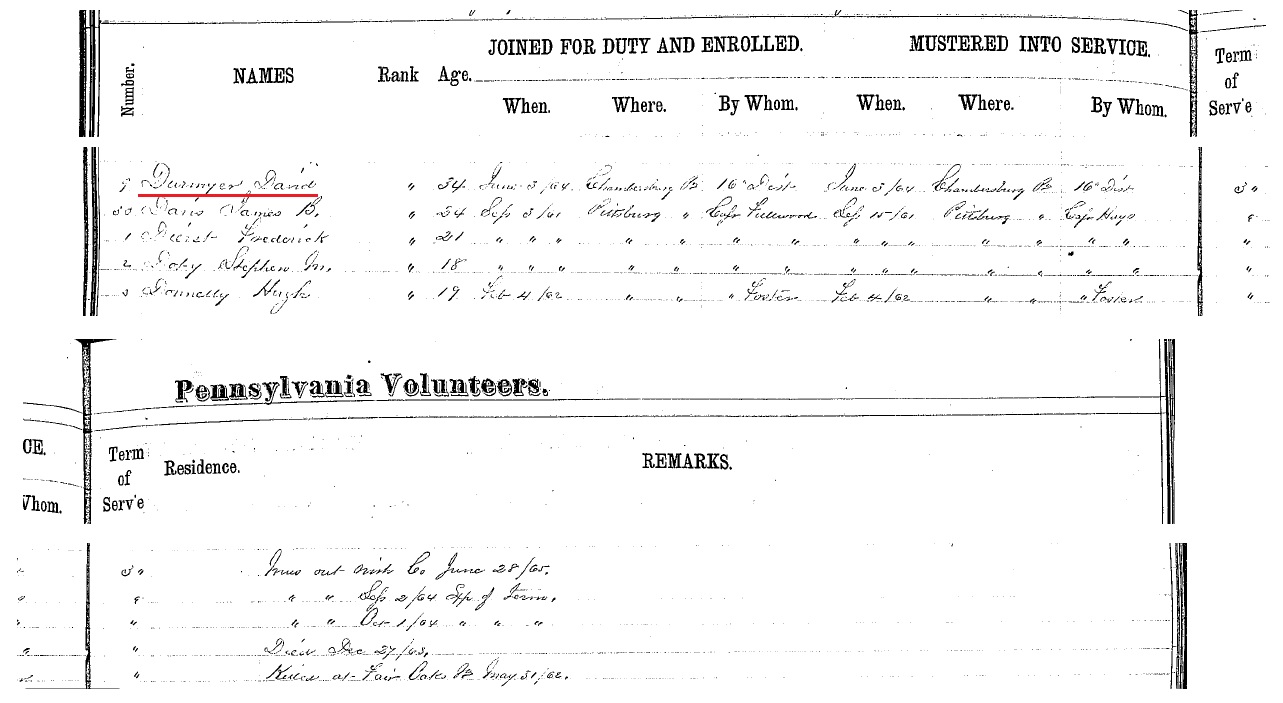 JOINED FOR DUTY AND ENROLLED. MUSTERED INTO SERVICE.
Number. NAMES Rank Age. When. Where. By Whom. When. Where. By Whom. Term of Serv'e
9 Durmyer David " 34 June 3/64 Chambersburg Pa 16" Dist June 3/64 Chambersburg Pa 16" Dist 3 "
30 Davis James B. " 24 Sep 3/61 Pittsburg " Capt Fullwood Sep 15/61 Pittsburg " Capt Hays "
1 Frederick " 21 " " " " " " " " " " " " " " "
2 Doty Stephen M. " 18 " " " " " " " " " " " " " " "
3 Donnelly Hugh " 19 Feb 4/62 " " " Foster Feb 4/62 " " " Foster "
Pennsylvania Volunteers.
CE.
Whom. Term of Serv'e Residence. REMARKS.
3 " Mus out with Co June 28/65.
" " Sep 2/64 Exp of Term.
" " " Oct 1/64 " " "
" " Died Dec 27/63.
" Killed at Fair Oaks Va May 31/62.